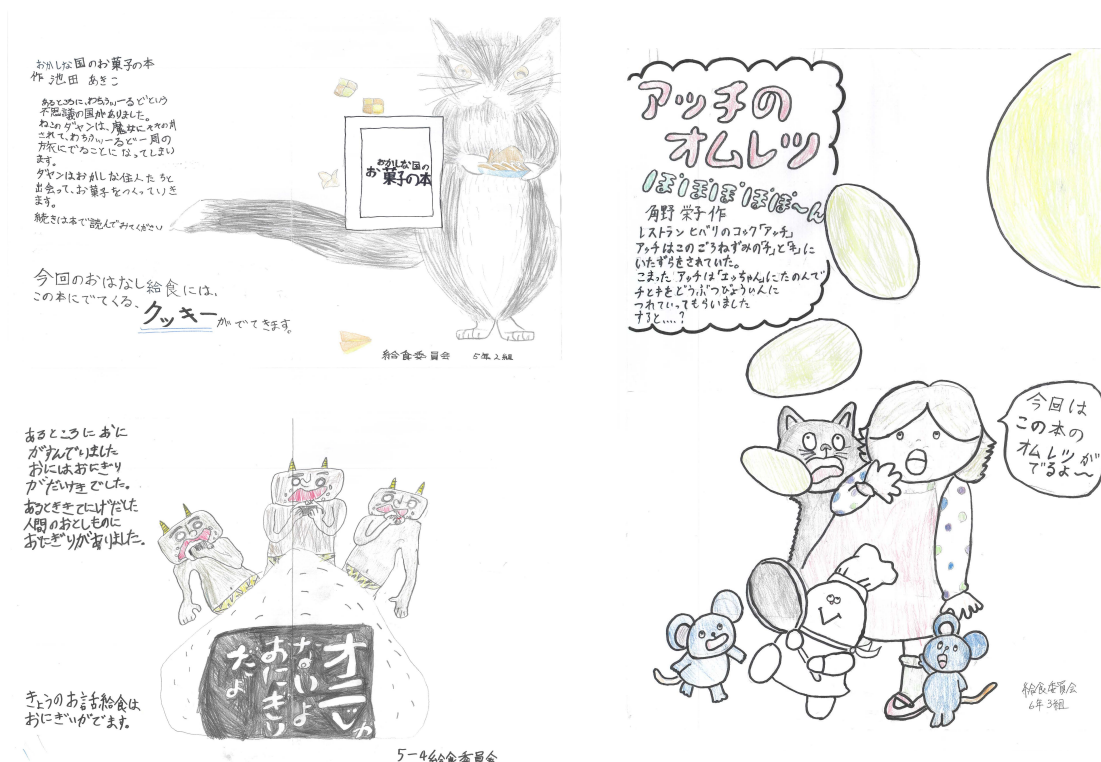 おかしな国のお菓子の本
作 池田 あきこ
あるところに、わちふぃーるどという
不思議の国がありました。
ねこのダヤンは、魔女にそそのか
されて、わちふぃーるど一周の
旅にでることになってしまい
ます。
ダヤンはおかしな住人たちと
出会って、お菓子をつくっていき
ます。
続きは本で読んでみてください
おかしな国の
お菓子の本
今回のおはなし給食には、
この本にでてくる、
クッキーがでてきます。
給食委員会 5年2組
あるところにおに
がすんでいました
おにはおにぎり
がだいすきでした。
あるときにげだした
人間のおとしものに
おにぎりがありました。
オニじゃ
ないよ
おにぎり
だよ
きょうのお話給食は
おにぎりがでます。
5-4給食委員会
アッチの
オムレツ
ぽぽぽぽぽ〜ん
角野 栄子 作
レストラン ヒバリのコック「アッチ」
アッチはこのごろねずみの「チ」と「キ」に
いたずらをされていた。
こまった アッチは「エッちゃん」にたのんで
チとキをどうぶつびょういんに
つれていってもらいました
すると、....?
今回は
この本の
オムレツが
でるよ〜
給食委員会
6年3組